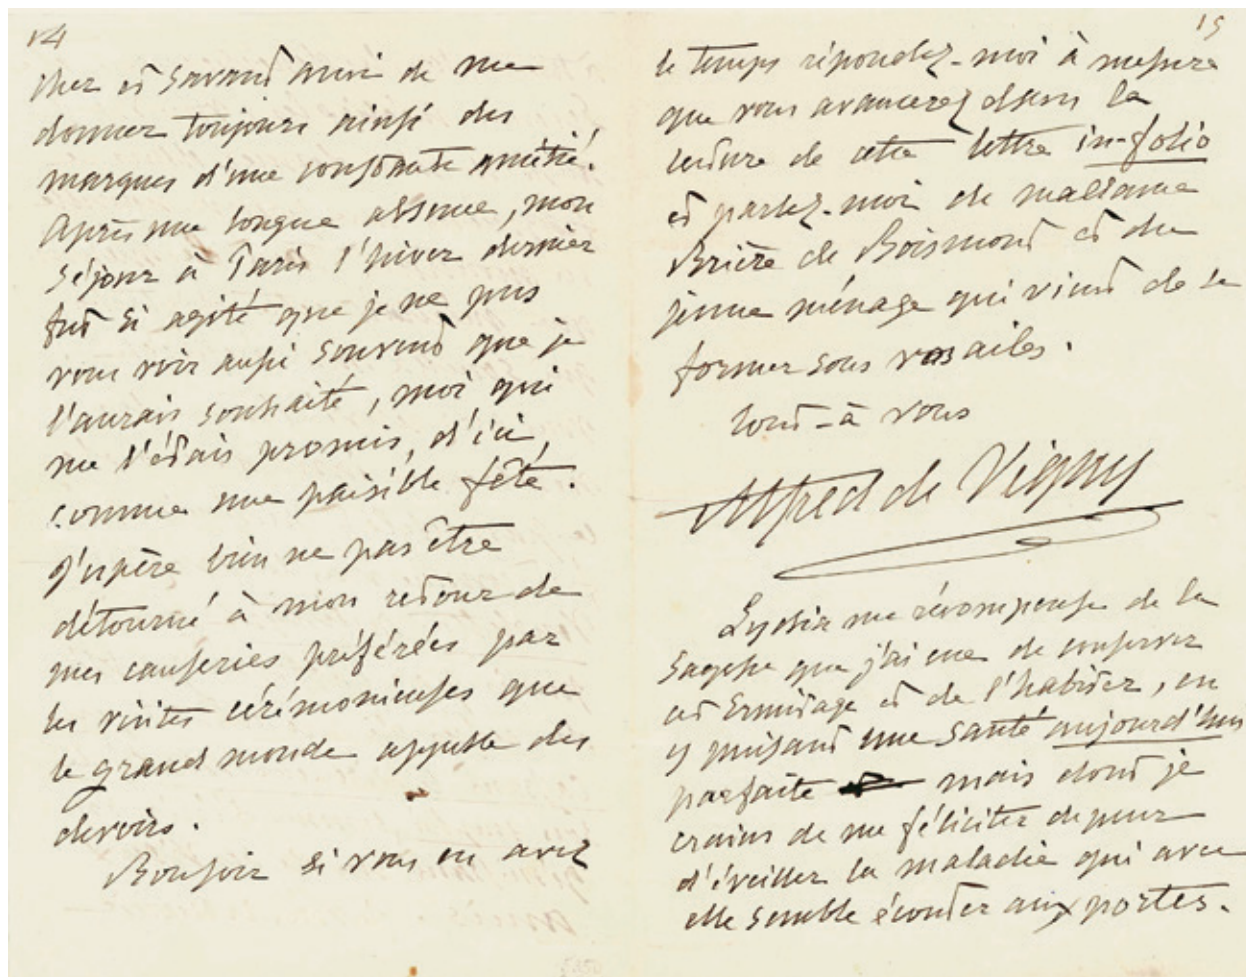 14
cher et savant ami de me
donner toujours ainsi des
marques d'une constante amitié.
Après une longue absence, mon
séjour à Paris l'hiver dernier
fut si agité que je ne pus
vous voir aussi souvent que je
l'aurais souhaité, moi qui
me l'étais promis, d'ici,
comme une paisible fête.
J'espère bien ne pas être
détourné à mon retour de
mes causeries préférées par
les visites cérémonieuses que
le grand monde appelle des
devoirs.
Bonsoir si vous en avez
15
le temps répondez-moi à mesure
que vous avancerez dans la
lecture de cette lettre in-folio
et parlez-moi de madame
Brière de Boismont et du
jeune ménage qui vient de se
former sous vos ailes.
tout-à vous
Alfred de Vigny
Lydia me récompense de la
sagesse que j'ai eue de conserver
cet Ermitage et de l'habiter, en
y puisant une santé aujourd'hui
parfaite mais dont je
crains de me féliciter de peur
d'éveiller la maladie qui avec
elle semble écouter aux portes.